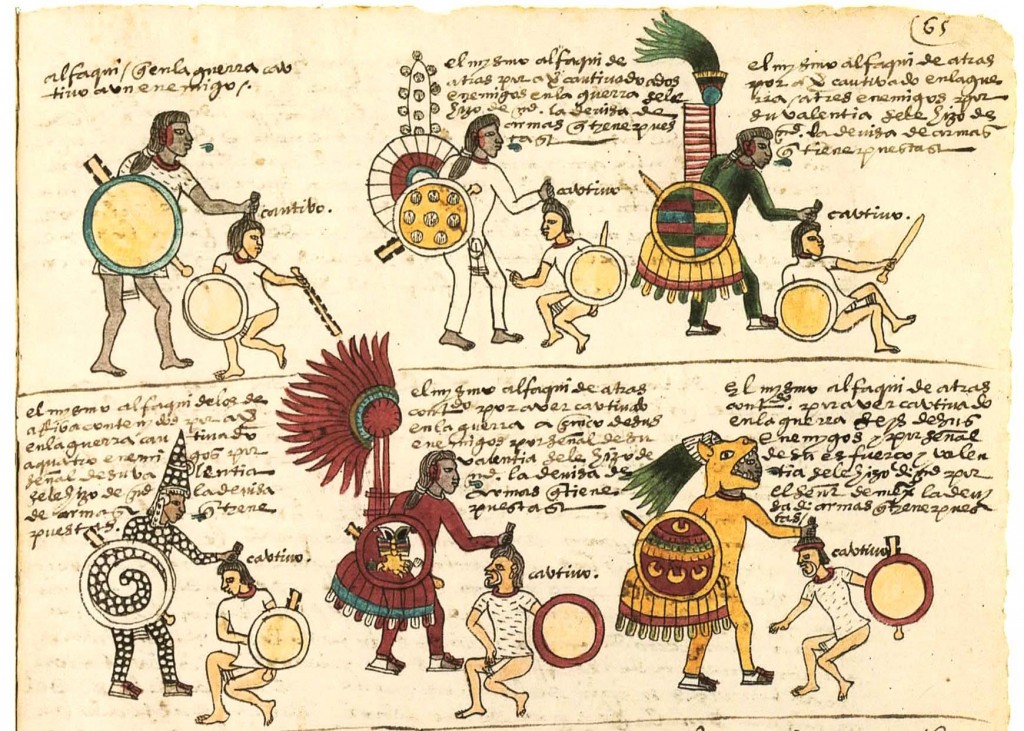 65
alfaqui / q̄ en la guerra cau
tivo a un enemigo /.
cautivo.
el mysmo alfaqui de
atras por a v̄ cautivado a dos
enemigos en la guerra se le
hizo de md. la devisa de
armas q̄ tiene pues
tas
cautivo
el mysmo alfaqui de atras
por a v̄ cautivado en la gue
rra / a tres enemigos por
su valentia se le hizo de
md. la devisa de armas
q̄ tiene puestas
cautivo.
el mysmo alfaqui de los de
arriba contenidos por a v̄
en la guerra cau tivado
a quatro enemi gos por
señal de su va lentia
se le hizo de md la devisa
de armas q̄ tiene
puestas.
cautivo.
el mysmo alfaqui de atras
por aver cautivado
en la guerra a cinco de sus
enemigos por señal de su
valentia se le hizo de
md. la devisa de
armas q̄ tiene
puestas
cautivo.
El mysmo alfaqui de atras
por aver cautivado
en la guerra seys de sus
enemygos y por señal
de su esfuerço y valen
tia se le hizo md por
el señor de mexco la devi
sa de armas q̄ tiene pues
tas /
cautivo